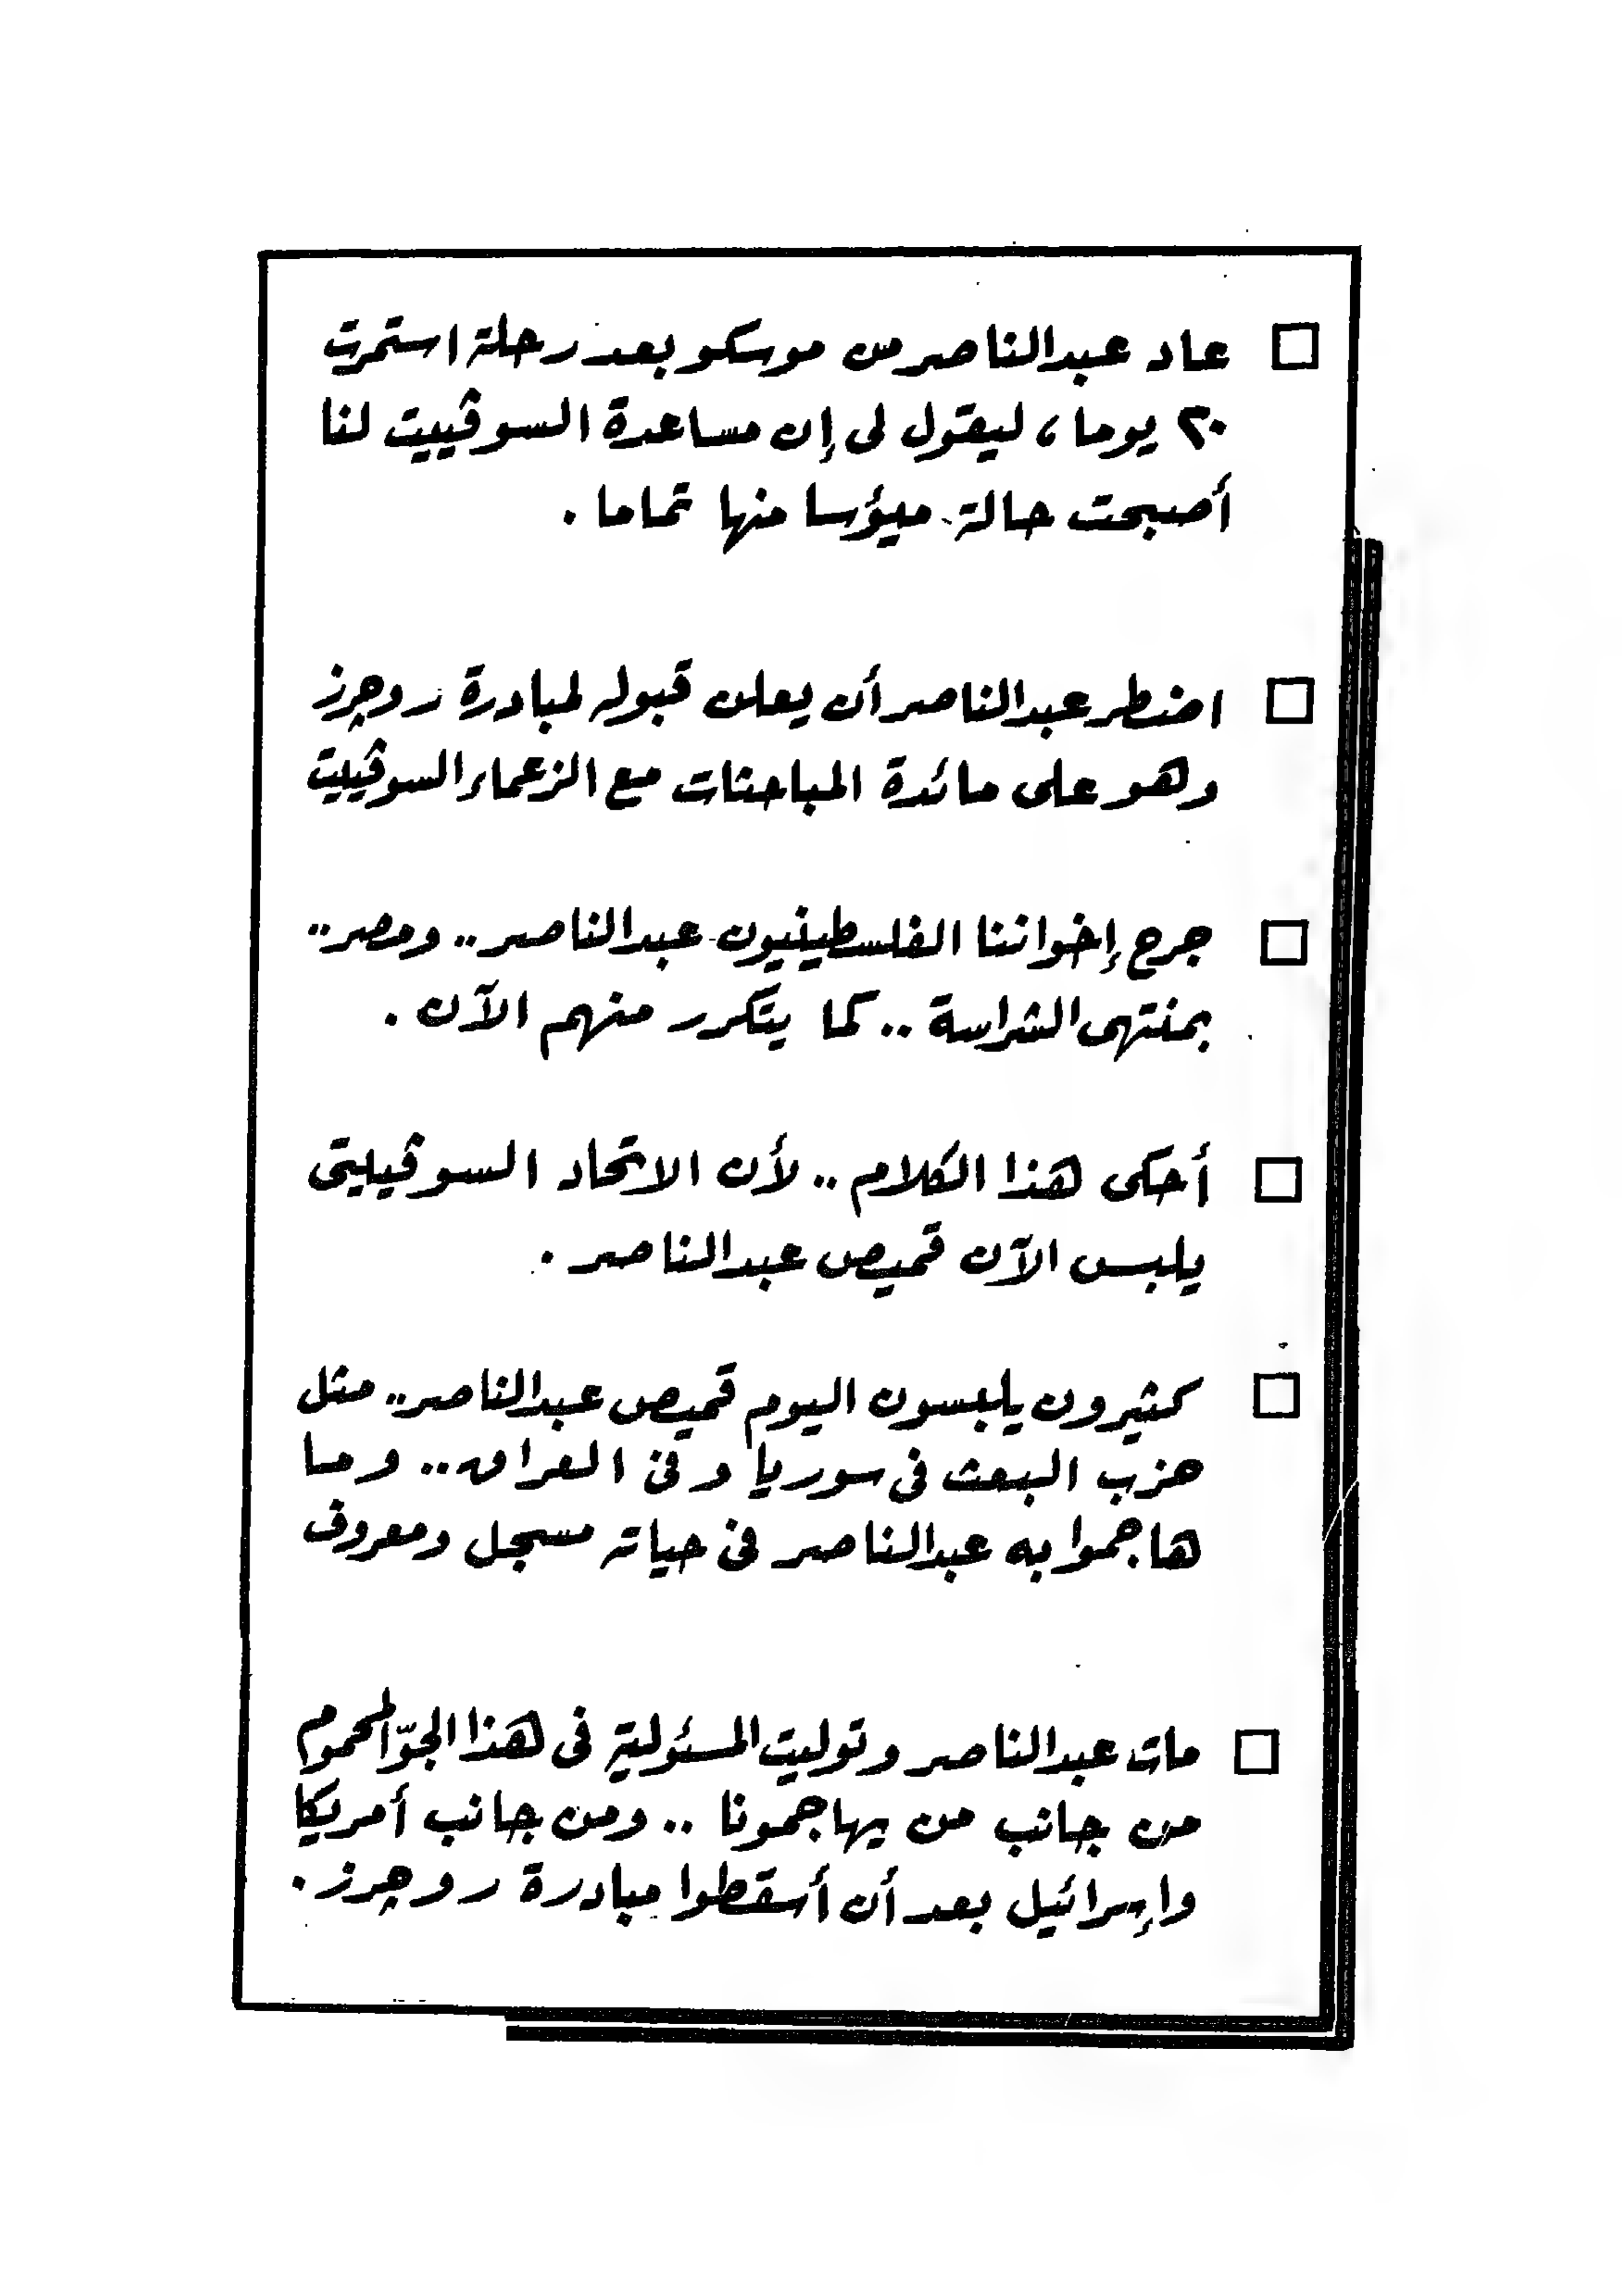 □ عاد عبدالناصر من موسكو بعد رحلة استمرت
٢٠ يوما، ليقول لى إن مساعدة السوڤييت لنا
أصبحت حالة ميؤسا منها تماما .
□ اضطر عبدالناصر أن يعلن قبوله لمبادرة روچرز
وهو على مائدة المباحثات مع الزعماء السوڤييت
□ جرح إخواننا الفلسطينيون عبدالناصر .. ومصر ..
بمنتهى الشراسة .. كما يتكرر منهم الآن .
□ أحكى هذا الكلام .. لأن الاتحاد السوڤييتى
يلبس الآن قميص عبدالناصر .
□ كثيرون يلبسون اليوم قميص عبدالناصر .. مثل
حزب البعث فى سوريا وفى العراق .. وما
هاجموا به عبدالناصر فى حياته مسجل ومعروف
□ مات عبدالناصر وتوليت المسئولية فى هذا الجوّ المحموم
من جانب من يهاجمونا .. ومن جانب أمريكا
وإسرائيل بعد أن أسقطوا مبادرة روچرز .